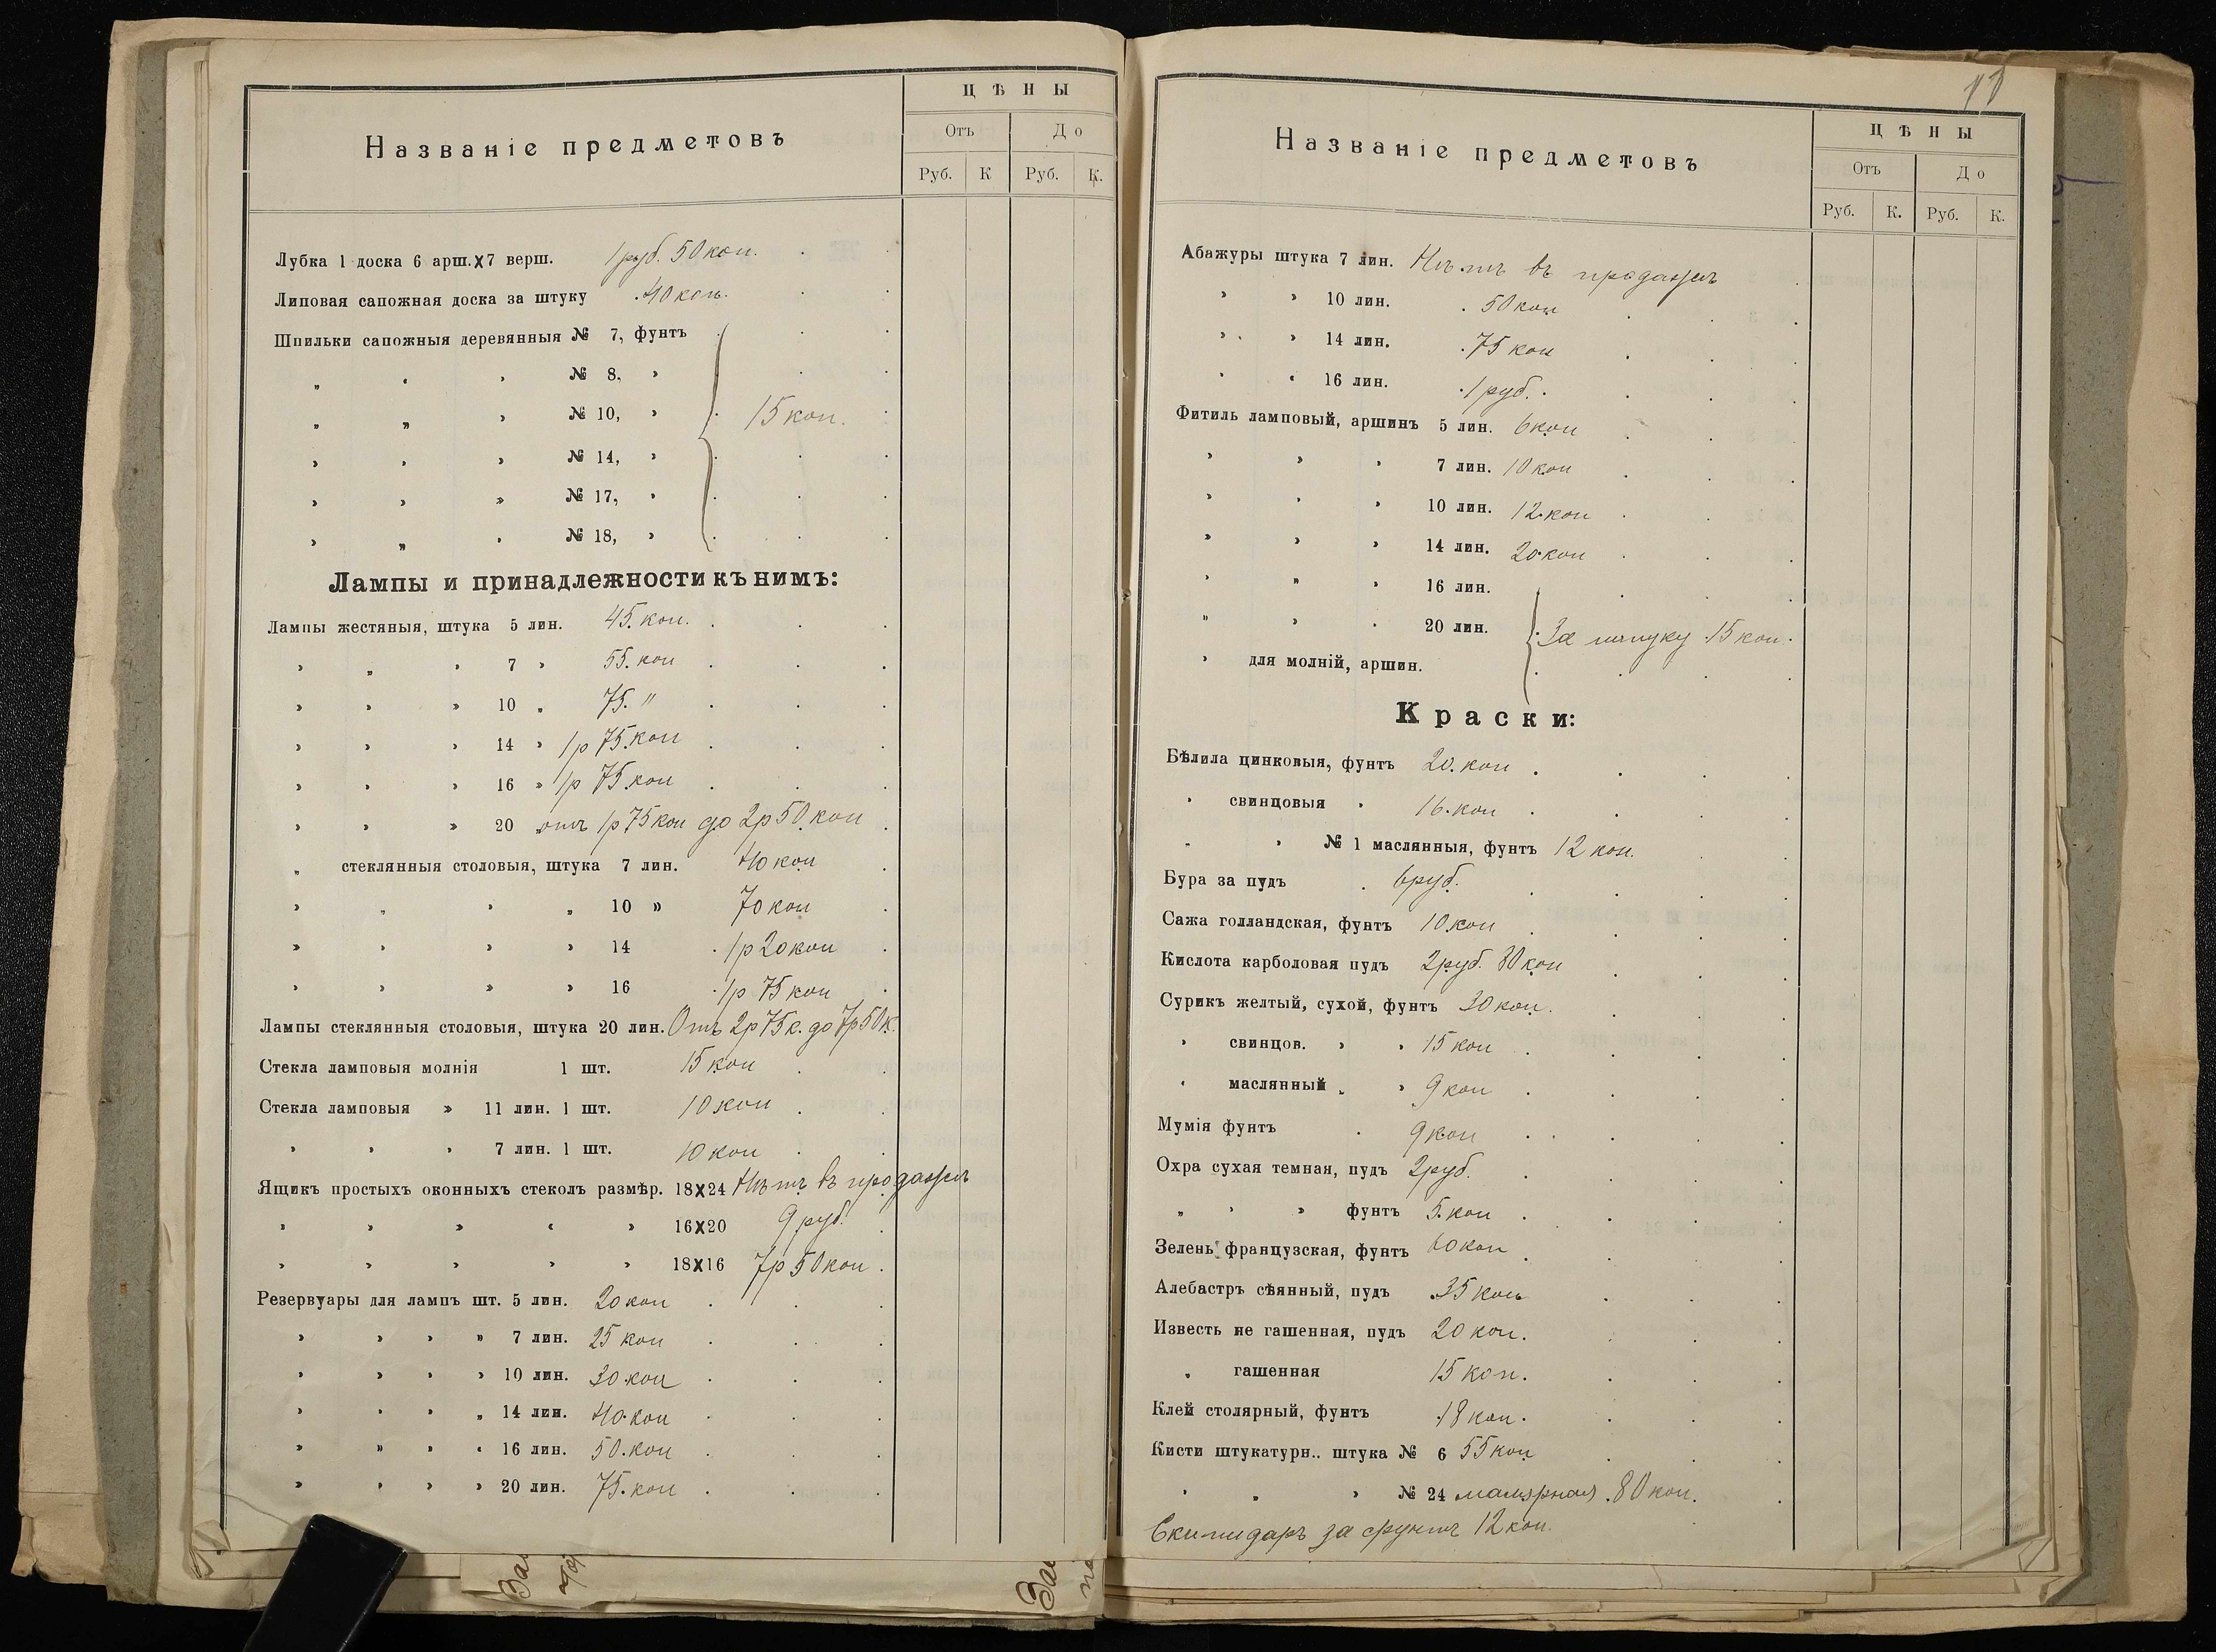 Названіе предметовъ
ЦѢНЫ
Отъ До
Руб. К Руб. К.
Лубка 1 доска 6 арш.Х7 верш. 1 руб. 50 коп.
Липовая сапожная доска за штуку 40 коп.
Шпильки сапожныя деревянныя № 7, фунтъ
„ „ „ № 8, „
„ „ „ № 10, „ 15 коп.
„ „ „ № 14, „
„ „ „ № 17, „
„ „ „ № 18, „
Лампы и принадлежности къ нимъ:
Лампы жестяныя, штука 5 лин. 45. коп.
„ „ „ 7 „ 55. коп
„ „ „ 10 „ 75. "
„ „ „ 14 „ 1р 75. коп
„ „ „ 16 „ 1р 75 коп
„ „ „ 20 „ отъ 1р 75 коп до 2р 50 коп
„ стеклянныя столовыя, штука 7 лин. 40 коп
„ „ „ „ 10 „ 70 коп
„ „ „ „ 14 1р 20 коп
„ „ „ „ 16 1р 75 коп
Лампы стеклянныя столовыя, штука 20 лин. Отъ 2р 75 к. до 7р 50 к.
Стекла ламповыя молнія 1 шт. 15 коп
Стекла ламповыя „ 11 лин. 1 шт. 10 коп
„ „ „ 7 лин. 1 шт. 10 коп
Ящикъ простыхъ оконныхъ стеколъ размѣр. 18Х24 Нѣтъ въ продажѣ
„ „ „ „ „ 16Х20 9 руб.
„ „ „ „ „ 18Х16 7р 50 коп.
Резервуары для лампъ шт. 5 лин. 20 коп
„ „ „ „ 7 лин. 25 коп
„ „ „ „ 10 лин. 30 коп
„ „ „ „ 14 лин. 40. коп
„ „ „ „ 16 лин. 50. коп
„ „ „ „ 20 лин. 75. коп
Названіе предметовъ
ЦѢНЫ
Отъ До
Руб. К. Руб. К.
Абажуры штука 7 лин. Нѣтъ въ продажѣ
„ „ 10 лин. 50 коп
„ „ 14 лин. 75 коп
„ „ 16 лин. 1 руб.
Фитиль ламповый, аршинъ 5 лин. 6 коп
„ „ „ 7 лин. 10 коп
„ „ „ 10 лин. 12 коп
„ „ „ 14 лин. 20 коп
„ „ „ 16 лин.
„ „ „ 20 лин. За штуку 15 коп.
„ для молній, аршин.
Краски:
Бѣлила цинковыя, фунтъ 20. коп
„ свинцовыя „ 16. коп
„ „ № 1 маслянныя, фунтъ 12 коп.
Бура за пудъ 6 руб.
Сажа голландская, фунтъ 10 коп
Кислота карболовая пудъ 2 руб. 80 коп
Сурикъ желтый, сухой, фунтъ 30 коп.
„ свинцов. „ „ 15 коп
„ маслянный „ „ 9 коп
Мумія фунтъ 9 коп
Охра сухая темная, пудъ 2 руб.
„ „ „ фунтъ 5. коп
Зелень французская, фунтъ 60 коп
Алебастръ сѣянный, пудъ 35 коп
Известь не гашенная, пудъ 20 коп.
„ гашенная 15 коп.
Клей столярный, фунтъ 18 коп.
Кисти штукатурн.. штука № 6 55 коп
„ „ „ № 24 малярная 80 коп.
Скипидаръ за фунтъ 12 коп.